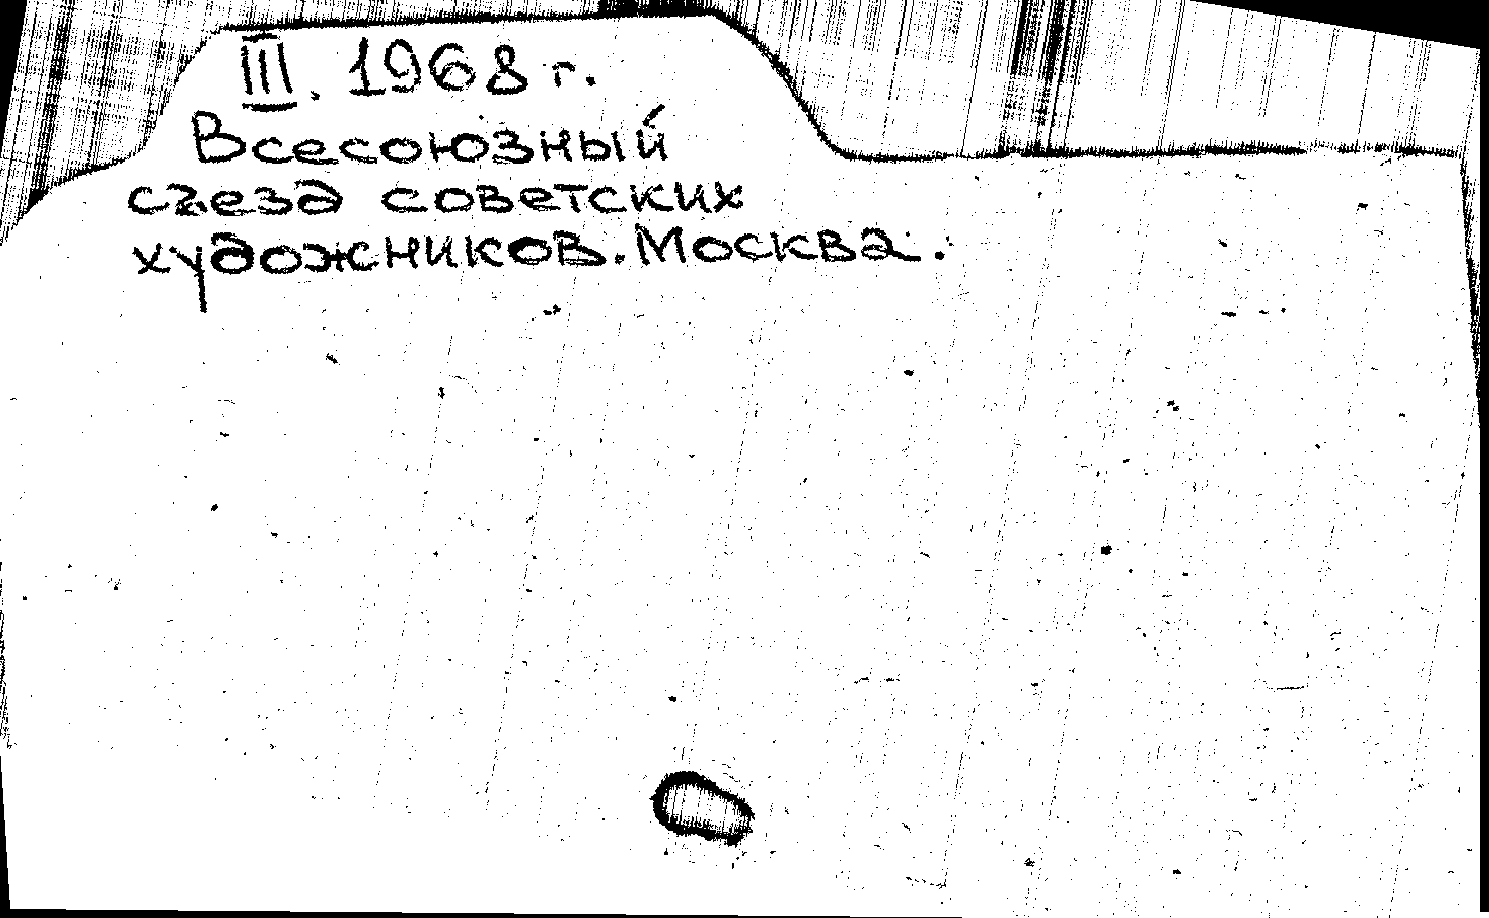 III. 1968 г.
Всесоюзный
съезд советских
художников. Москва.